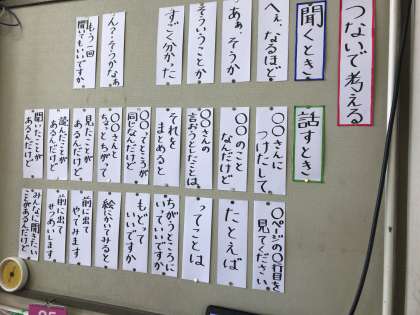 つないで考える
聞くとき
へぇ、なるほど
あぁ、そうか
そういうことか
すごく分かった
ん?そうかなぁ
もう一回
聞いてもいいですか
話すとき
〇〇さんに
つけたして
〇〇のこと
なんだけど
〇〇さんの
言おうとしたことは、
それを
まとめると
〇〇ってところが
同じなんだけど
〇〇さんと
ちょっとちがって
見たことが
あるんだけど、
読んだことが
あるんだけど
聞いたことが
あるんだけど
〇ページの〇行目を
見てください。
たとえば
ってことは
ちがうところに
いっていいですか
もどって
いいですか
絵にかいてみると
前に出て
やってみます
前に出て
せつめいします。
みんなに聞きたい
ことがあるんだけど